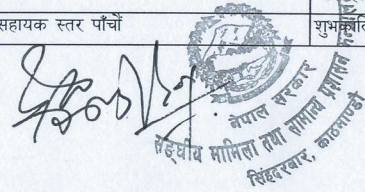 सहायक स्तर पाँचौं
नेपाल सरकार
सङ्घीय मामिला तथा सामान्य प्रशासन
सिंहदरबार, काठमाण्डौ